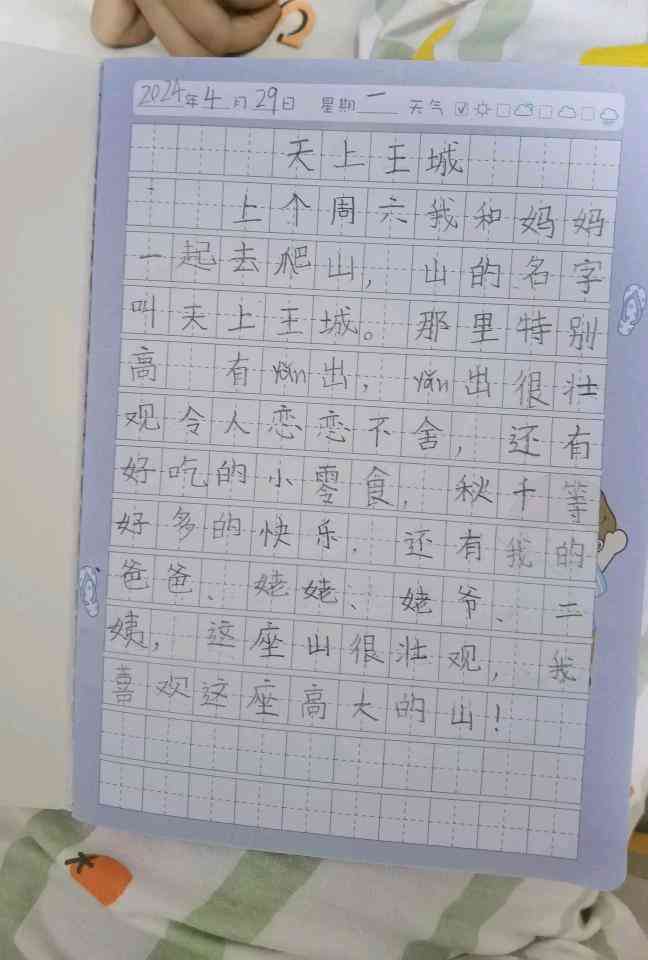 2024年4月29日 星期一 天气
天上王城
上个周六我和妈妈
一起去爬山，山的名字
叫天上王城。那里特别
高 有yán出，yán出很壮
观令人恋恋不舍，还有
好吃的小零食，秋千等
好多的快乐．还有我的
爸爸、姥姥、姥爷、二
姨，这座山很壮观，我
喜欢这座高大的山！